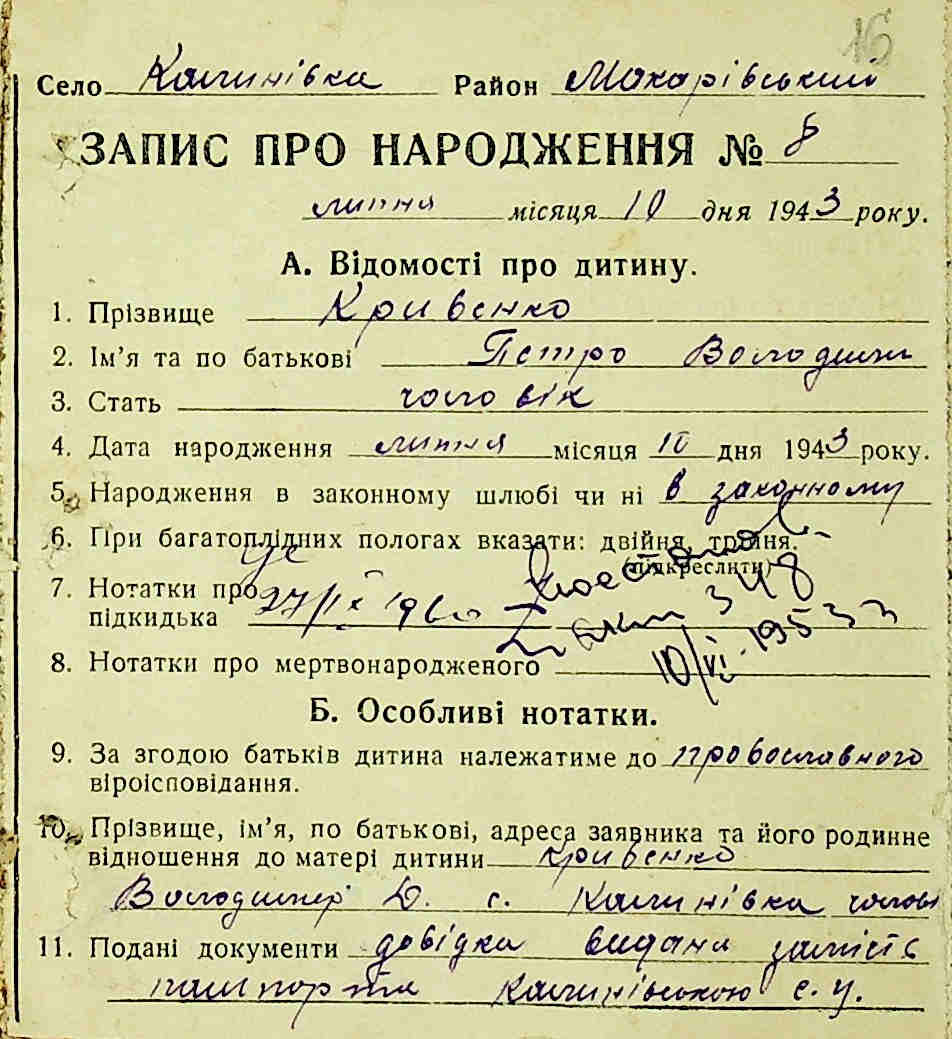 16
Село Калинівка Район Макарівський
ЗАПИС ПРО НАРОДЖЕННЯ № 8
липня місяця 10 дня 1943 року.
А. Відомості про дитину.
1. Прізвище Кривенко
2. Ім’я та по батькові Петро Володими
3. Стать чоловік
4. Дата народження липня місяця 10 дня 1943 року.
5. Народження в законному шлюбі чи ні в законному
6. При багатоплідних пологах вказати: двійня, трійня.
(підкреслити)
7. Нотатки про
підкидька 27/IX 1960
348
10/VI-1953
8. Нотатки про мертвонародженого
Б. Особливі нотатки.
9. За згодою батьків дитина належатиме до православного
віроісповідання.
10. Прізвище, ім’я, по батькові, адреса заявника та його родинне
відношення до матері дитини Кривенко
Володимер Д. с. Калинівка чолові
11. Подані документи довідка видана замість
пашпорта Калинівською с. у.